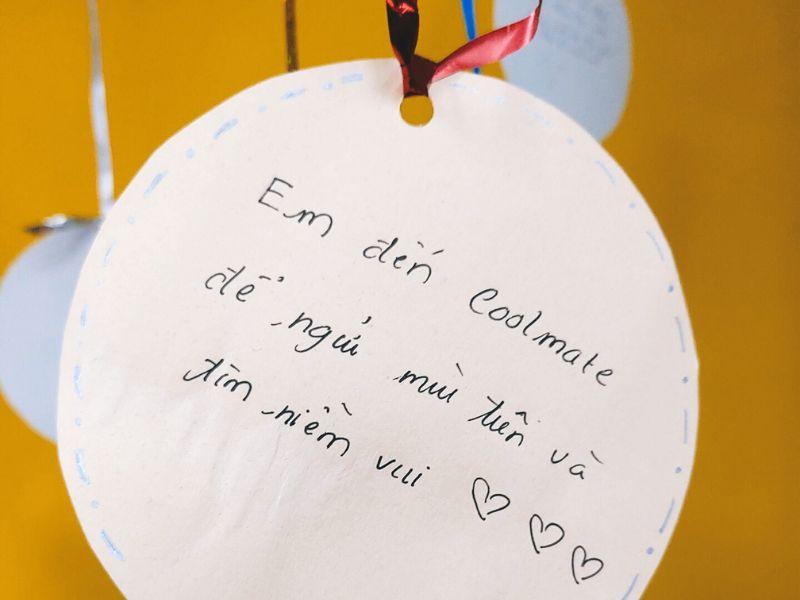 Em đến Coolmate
để ngửi mùi tiền và
tìm niềm vui ♡ ♡ ♡